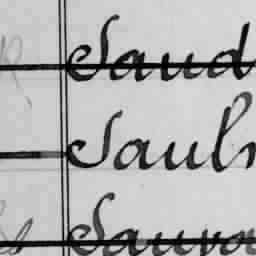 Saud
Sauln
Sauvo